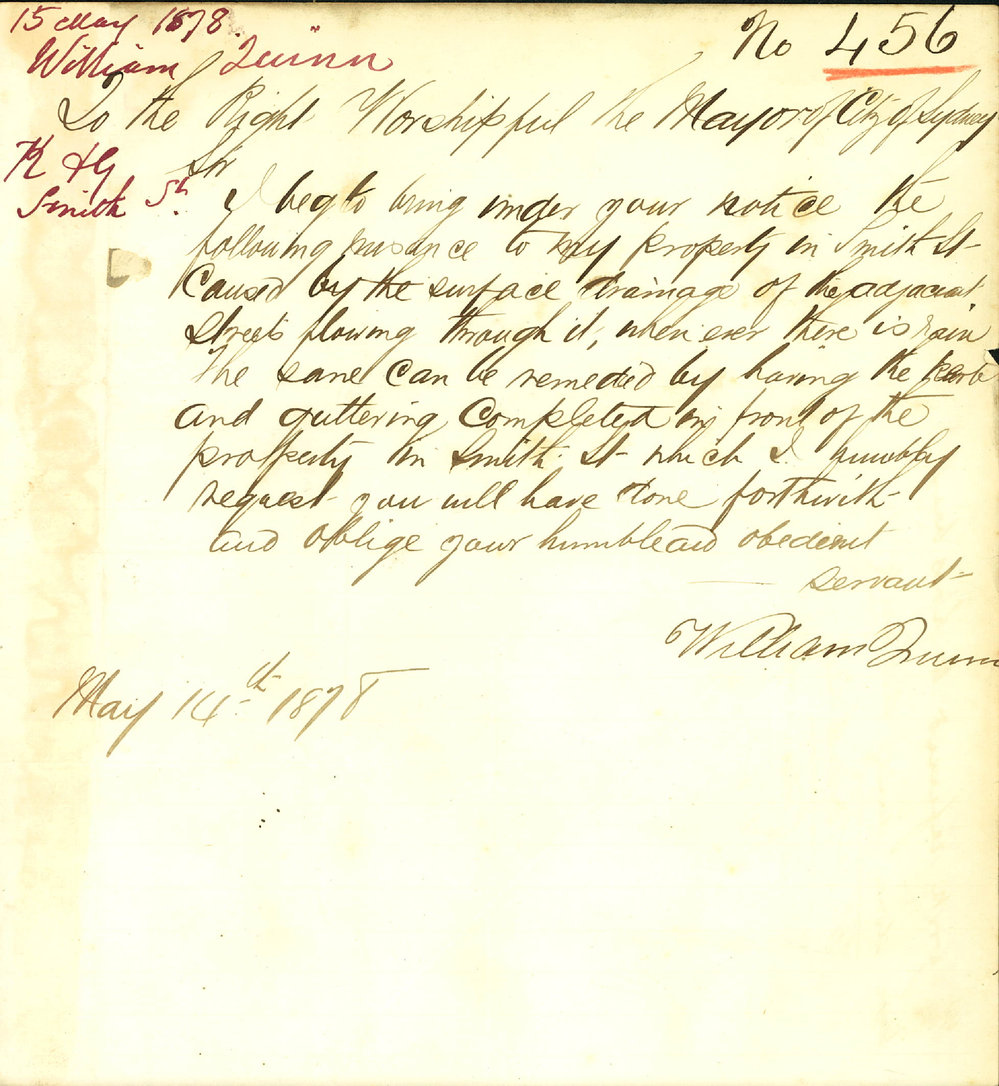 15 May 1878
William Quinn
No 456
To the Right Worshipful the Mayor of City of Sydney
K & G
Smith St.
Sir
I beg to bring under your notice the
following nusance to my property in Smith St
Caused by the surface drainage of the adjacent
Streets flowing through it, when ever there is rain
The same can be remedied by having the kerb
and guttering Completed in front of the
property in Smith St which I humbly
request you will have done forthwith
and oblige your humble and obedient
servant
William Quinn
May 14th 1878